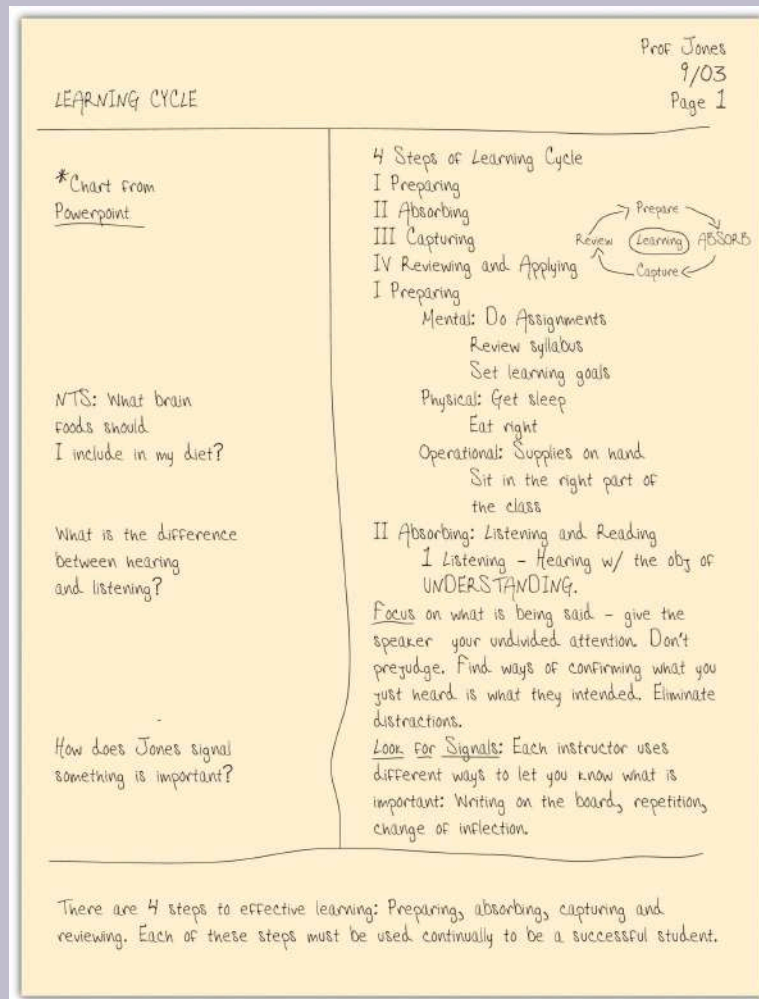 Prof Jones
9/03
LEARNING CYCLE
Page 1
*Chart from
Powerpoint
NTS: What brain
foods should
I include in my diet?
What is the difference
between hearing
and listening?
How does Jones signal
something is important?
4 Steps of Learning Cycle
I Preparing
II Absorbing
III Capturing
IV Reviewing and Applying
Prepare
Review
Learning
ABSORB
Capture
I Preparing
Mental: Do Assignments
Review syllabus
Set learning goals
Physical: Get sleep
Eat right
Operational: Supplies on hand
Sit in the right part of
the class
II Absorbing: Listening and Reading
1 Listening - Hearing w/ the obj of
UNDERSTANDING.
Focus on what is being said - give the
speaker your undivided attention. Don't
prejudge. Find ways of confirming what you
just heard is what they intended. Eliminate
distractions.
Look for Signals: Each instructor uses
different ways to let you know what is
important: Writing on the board, repetition,
change of inflection.
There are 4 steps to effective learning: Preparing, absorbing, capturing and
reviewing. Each of these steps must be used continually to be a successful student.